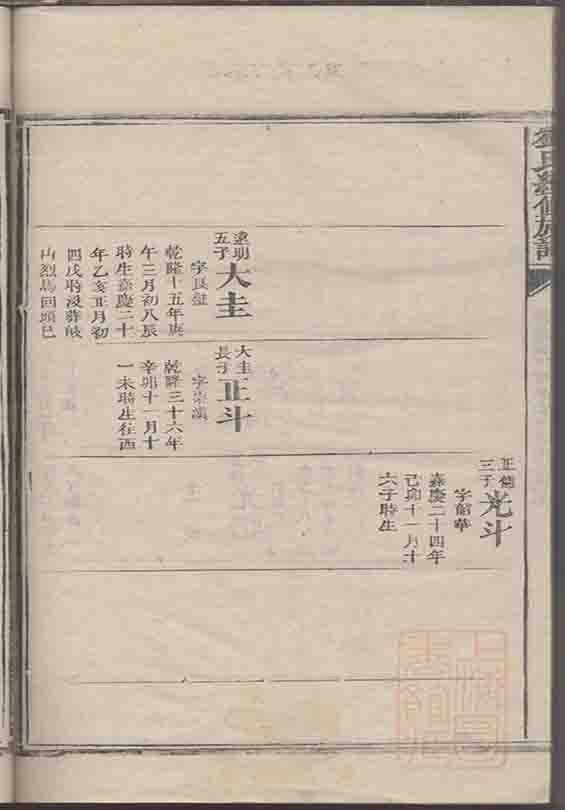 氏續修族譜
正
三子
光斗
字韶華
嘉慶二十四年
己卯十一月十
六子時生
遠明
五子
大圭
字良
乾隆十五年庚
午三月初八辰
時生嘉慶二十
年乙亥正月初
四戌時沒葬岐
山烈馬回頭巳
大圭
長子
正斗
字崇漢
乾隆三十六年
辛卯十一月十
一未時生往西